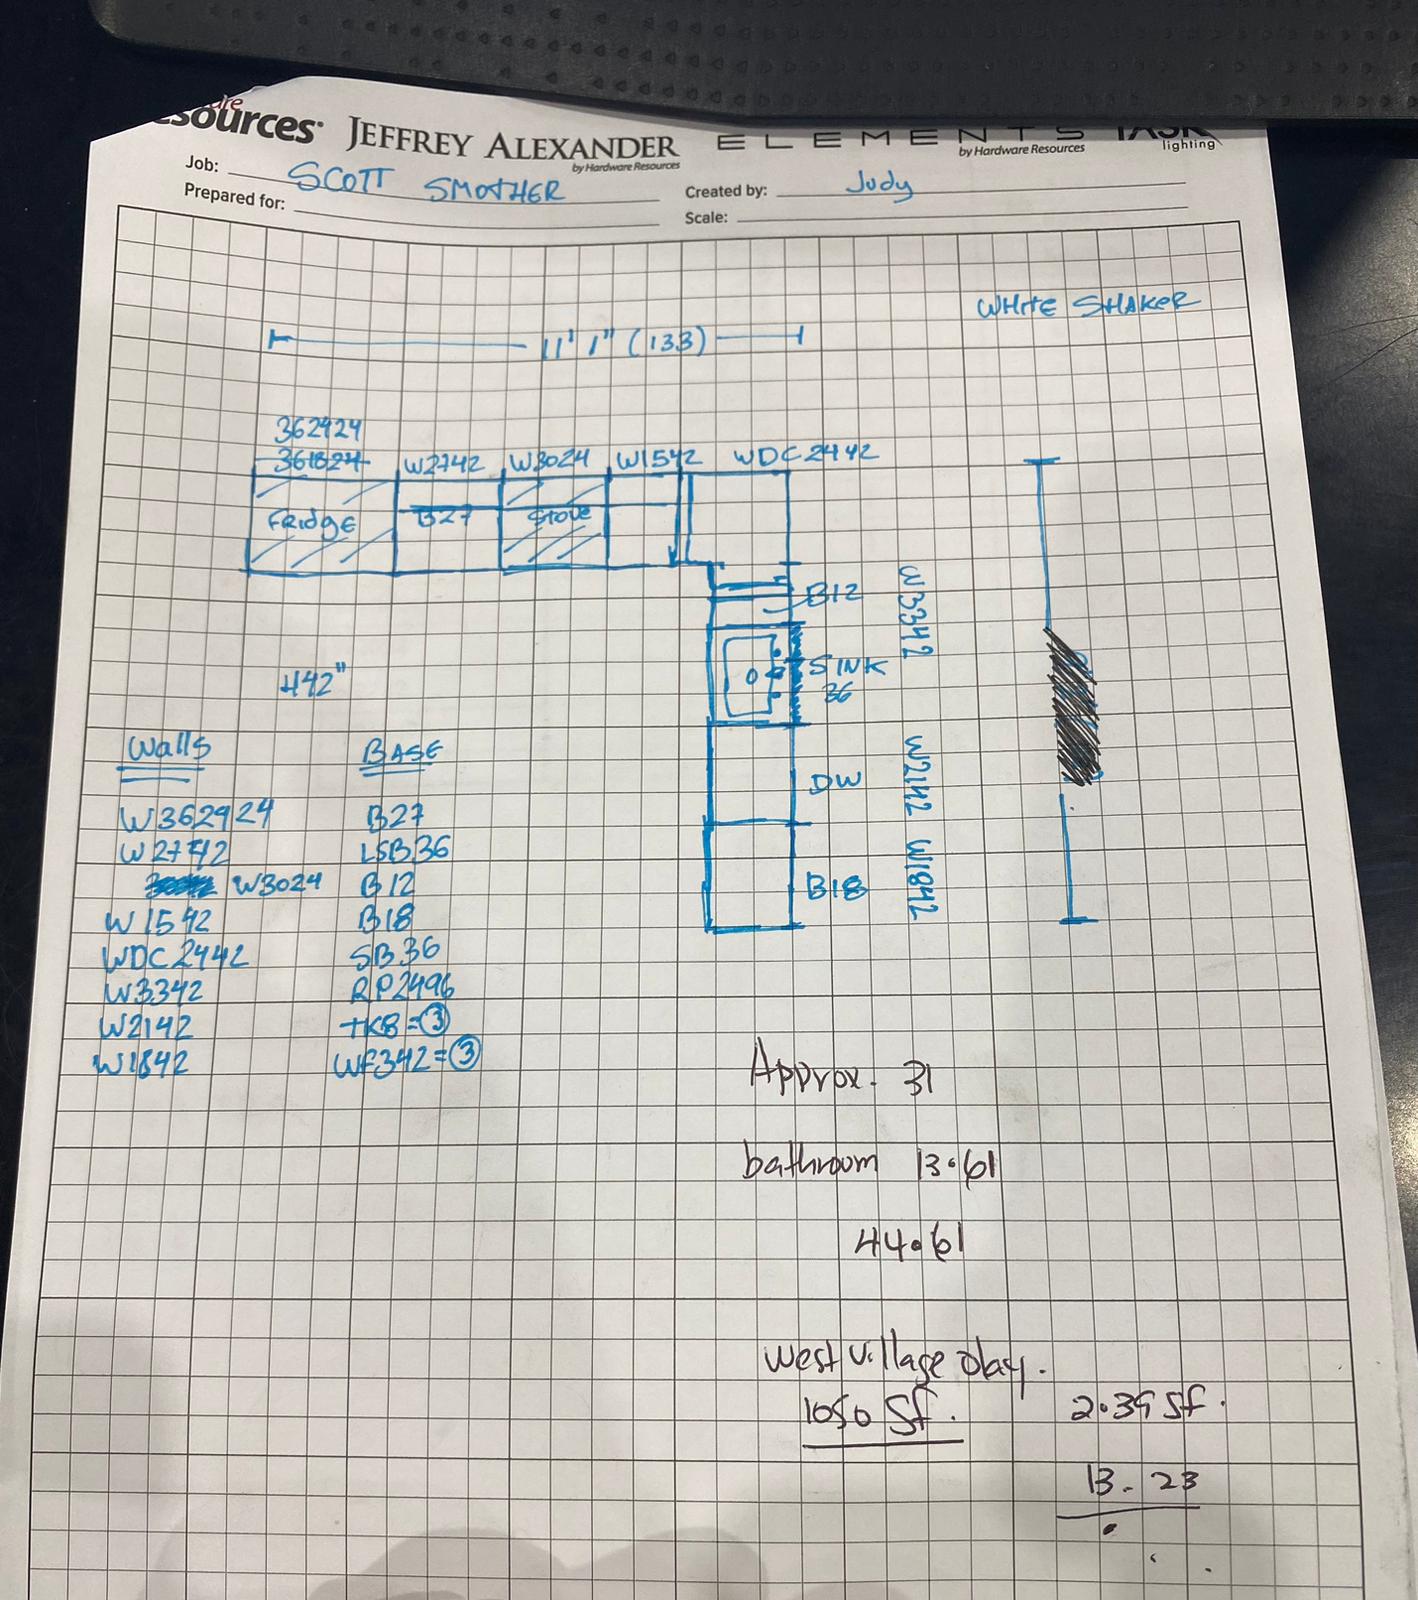 sources JEFFREY ALEXANDER ELEMENTS TASK
by Hardware Resources by Hardware Resources lighting
Job: SCOTT SMOTHER Created by: Judy
Prepared for: Scale:
WHITE SHAKER
11' 1" (133)
362424
361824
W2742 W3024 W1542 WDC2442
Fridge B27 Stove
B12
W3342
442"
SINK
36
DW
W2142
B18
W1842
Walls
W362424
W2742
W3024
W1542
WDC2442
W3342
W2142
W1842
BASE
B27
LSB36
B12
B18
SB36
RP2496
TK8=3
WF342=3
Approx. 31
bathroom 13.61
44.61
West village
1050 Sf.
2.39 Sf.
13.23